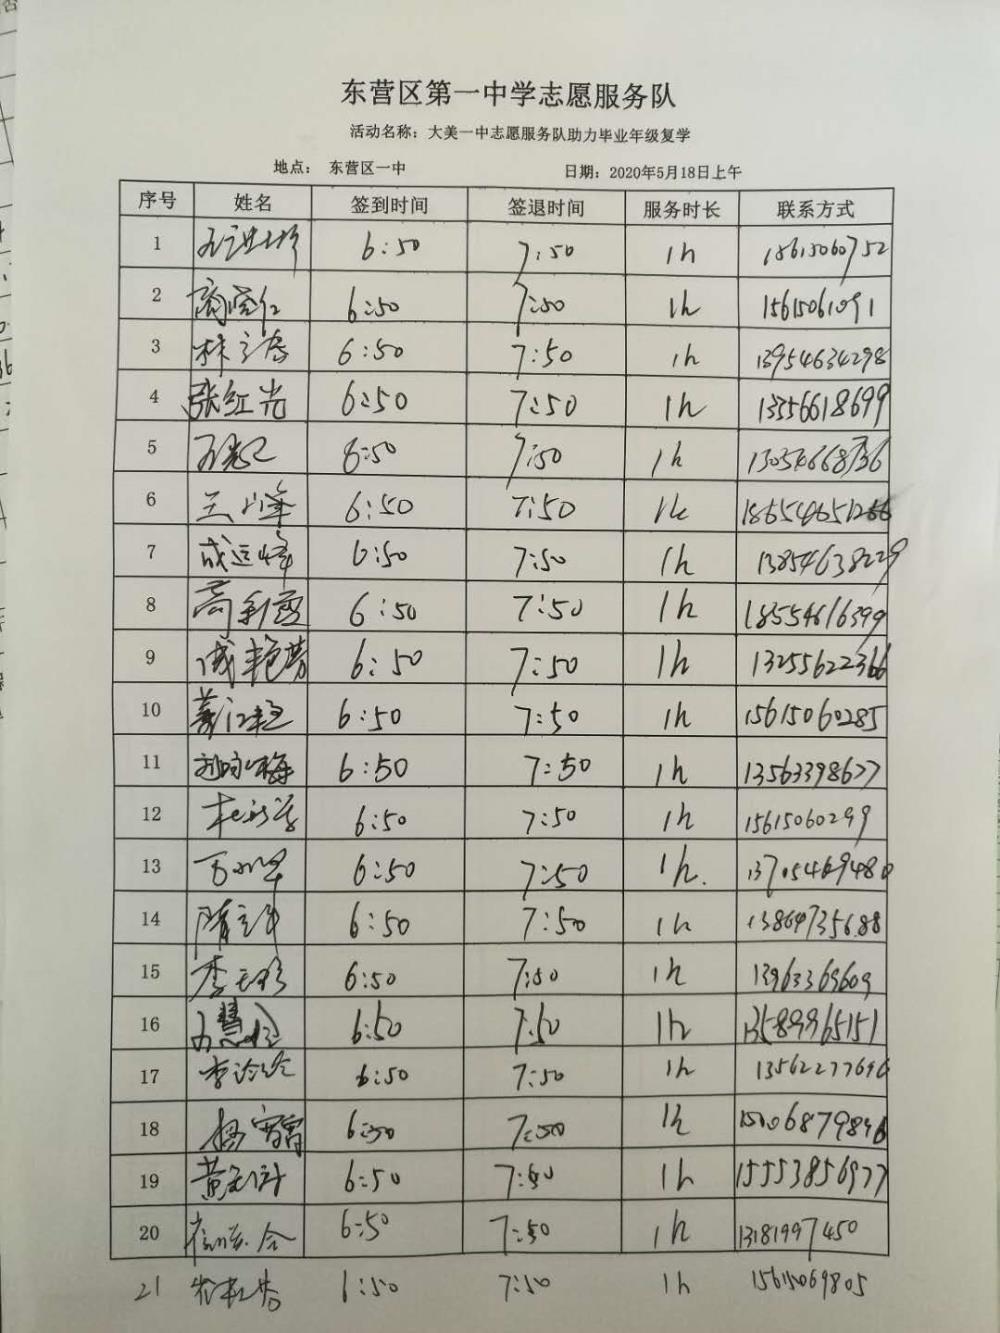 东营区第一中学志愿服务队
活动名称：大美一中志愿服务队助力毕业年级复学
地点： 东营区一中 日期：2020年5月18日上午
序号 姓名 签到时间 签退时间 服务时长 联系方式
1 6:50 7:50 1h 18615060752
2 6:50 7:50 1h 15615061091
3 6:50 7:50 1h 13954634298
4 张红光 6:50 7:50 1h 13356618699
5 6:50 7:50 1h 13054668736
6 王山峰 6:50 7:50 1h
7 成运峰 6:50 7:50 1h 13854638229
8 高利霞 6:50 7:50 1h 18554616399
9 成艳芳 6:50 7:50 1h 13255622366
10 6:50 7:50 1h 15615060285
11 6:50 7:50 1h 13563398677
12 6:50 7:50 1h 15615060299
13 6:50 7:50 1h. 13705469480
14 6:50 7:50 1h 13864735688
15 6:50 7:50 1h 13963369609
16 6:50 7:50 1h 13589965151
17 李玲玲 6:50 7:50 1h 13562277696
18 6:50 7:50 1h 15006879846
19 6:50 7:50 1h 15553856977
20 6:50 7:50 1h 13181997450
21 6:50 7:50 1h 15615069805